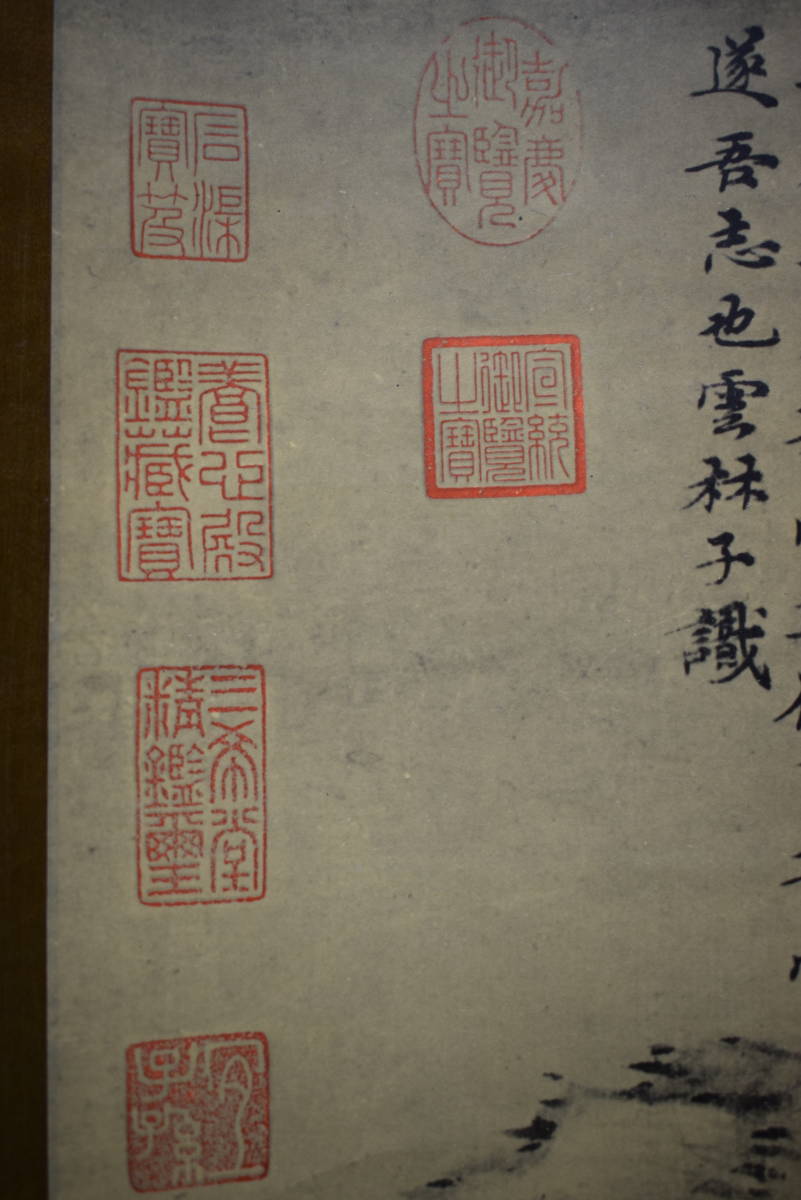 遂吾志也雲林子識
嘉慶
御覽
之寶
宣統
御覽
之寶
石渠
寶笈
養心殿
鑑藏寶
三希堂
精鑑璽
宜
子孫